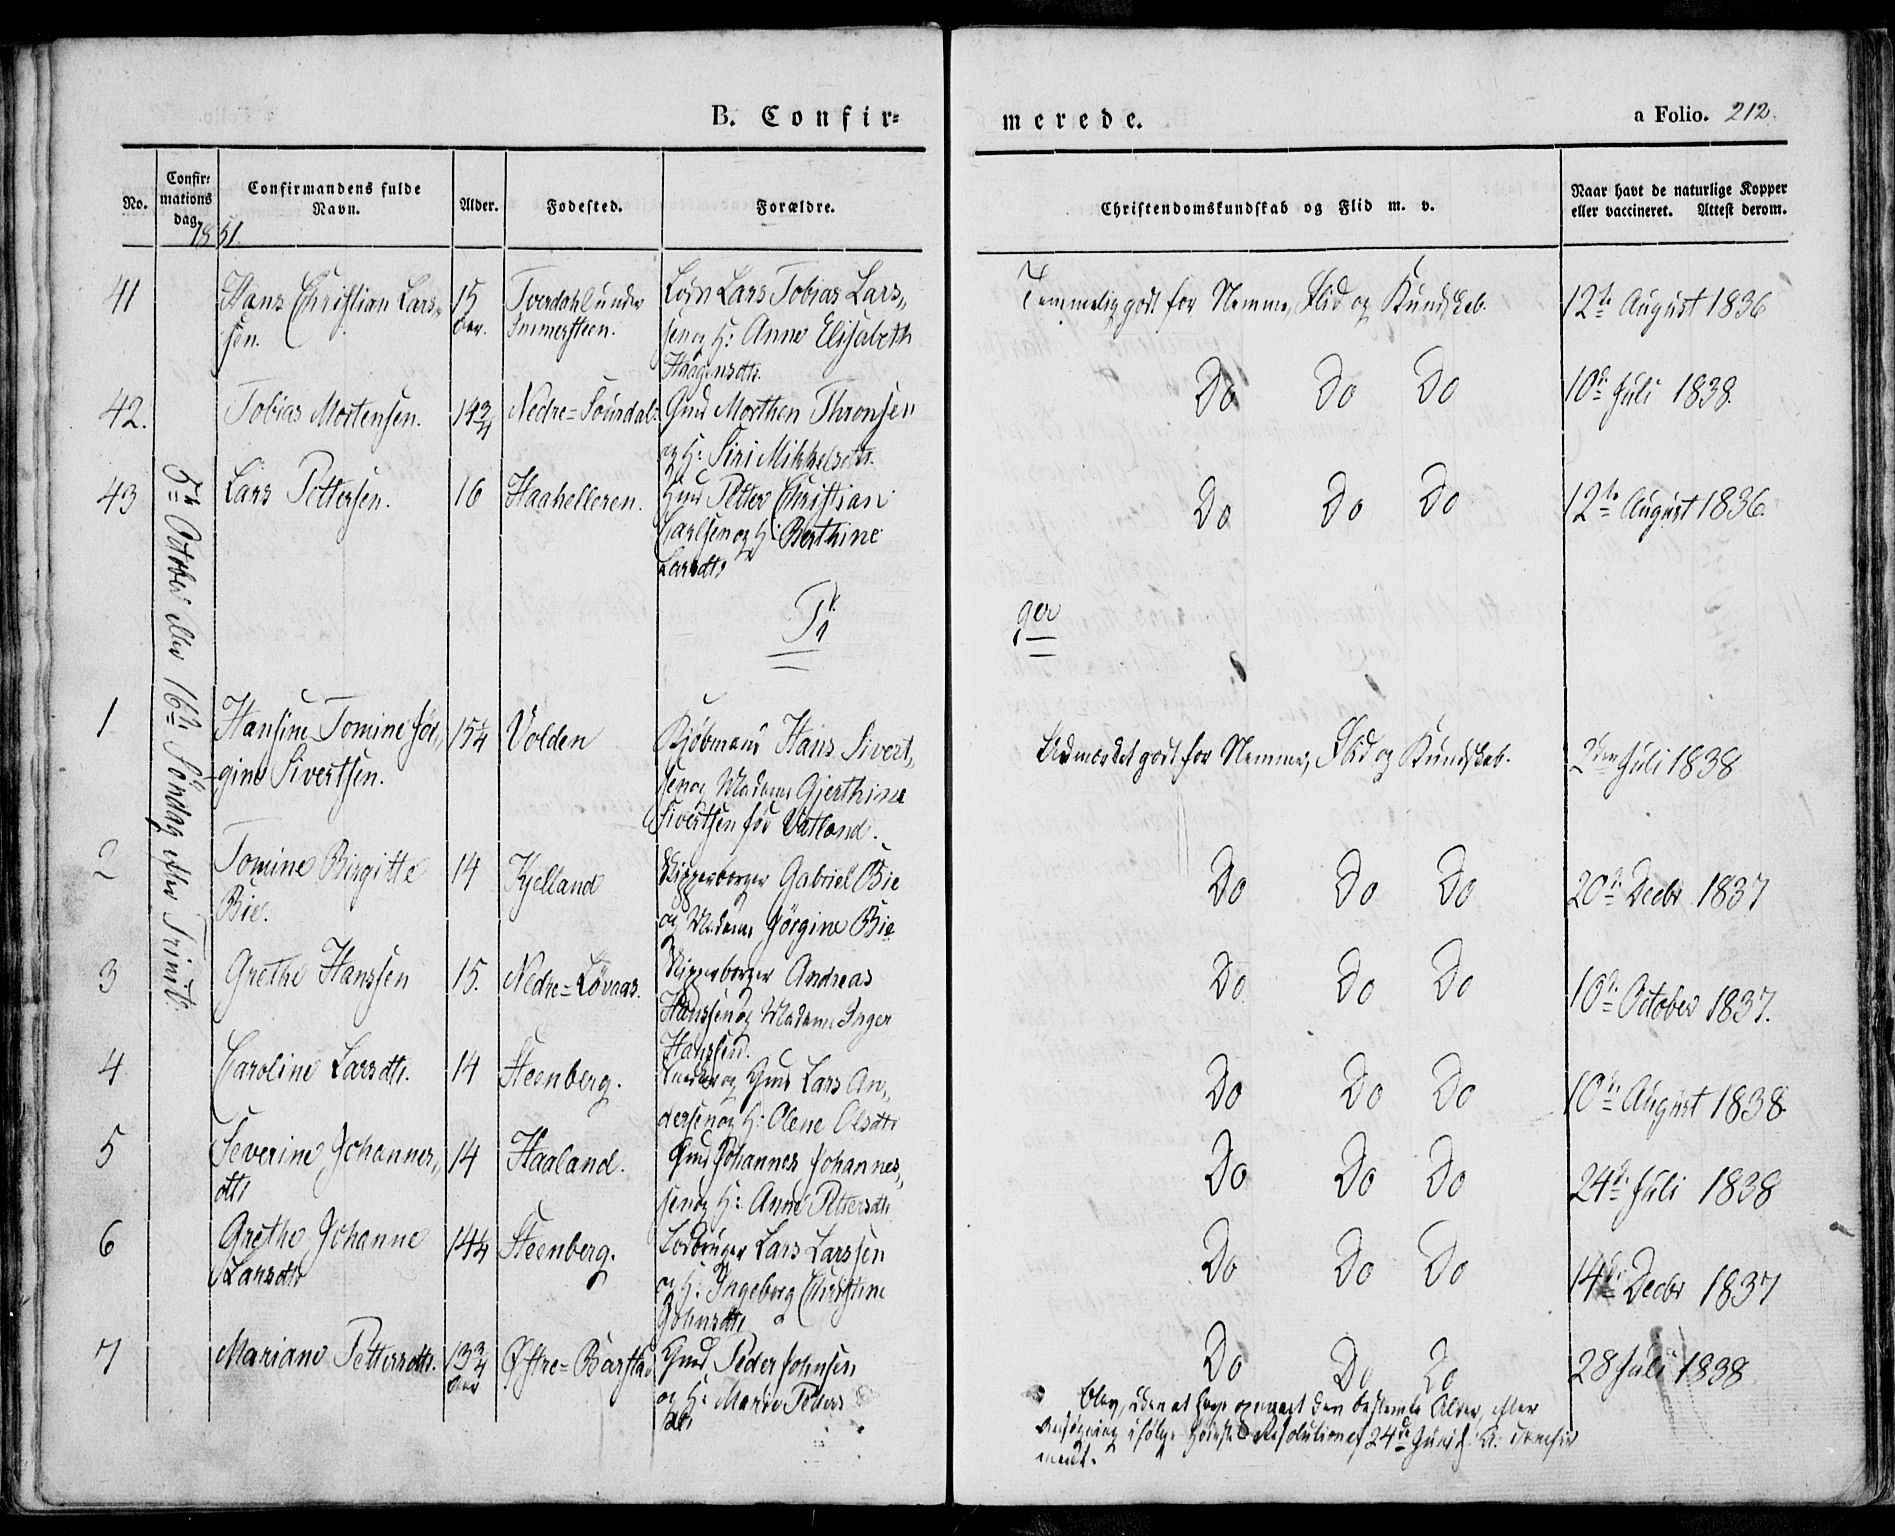 B. Confir=
merede.
a Folio. 212.
No.
Confir=
mations
dag.
1851.
Confirmandens fulde
Navn.
Alder.
Fødested.
Forældre.
Christendomskundskab og Flid m. v.
Naar havt de naturlige Kopper
eller vaccineret. Attest derom.
5te October eller 16de Søndag efter Trinit:
41 Hans Christian Lars„ 15 Tverdahl under Lods Lars Tobias Lars„ Temmelig godt for Nemme, Flid og Kundskab. 12te August 1836
sen. Aar. Immersteen. sen og H: Anne Elisabeth
Haagensdtr.
42. Tobias Mortensen. 14 3/4 Nedre= Gmd Morthen Thronsen Do Do Do 10de Juli 1838.
og H: Siri Mikkelsdtr.
43 Lars Pettersen. 16 Haahelleren. Hmd Petter Christian Do Do Do 12te August 1836.
Carlsen og H: Berthine
Larsdtr
Pi
ger
1 Hansine Tomine Jør„ 15 1/4 Volden Kjøbmand Hans Sivert„ Udmærket godt for Nemme, Flid og Kundskab. 2den Juli 1838
gine Sivertsen. sen og Madame Gjerthine
Sivertsen før Vatland.
2 Tomine Birgitte 14 Kjelland Skipperborger Gabriel Bie Do Do Do 20de Decbr 1837
Bie. og Madame Jørgine Bie
3 Grethe Hanssen 15. Nedre=Løvaas. Skipperborger Andreas Do Do Do 10de October 1837.
Hanssen og Madame Inger
Hanssen.
4 Caroline Larsdtr. 14 Steenberg. og Gmd Lars An„ Do Do Do 10de August 1838
dersen og H: Olene Olsdtr
5 Severine Johannes„ 14 Haaland. Gmd Johannes Johannes„ Do Do Do 24de Juli 1838
dtr sen og H: Anne Pettersdtr
6 Grethe Johanne 14 1/4 Steenberg. Jordbruger Lars Larssen Do Do Do 14de Decbr 1837
Larsdtr og H: Ingeborg Christine
Johnsdtr
7 Mariane Pettersdtr. 13 3/4 Øffre=Barstad Gmd Peder Johnsen Do Do Do 28 Juli 1838
Aar og H: Marie Peders
dtr
Blev, uden at have opnaaet den bestemte Alder, efter
Ansøgning ifølge Høieste Resolution af 24de Juni d. A. confir
meret.